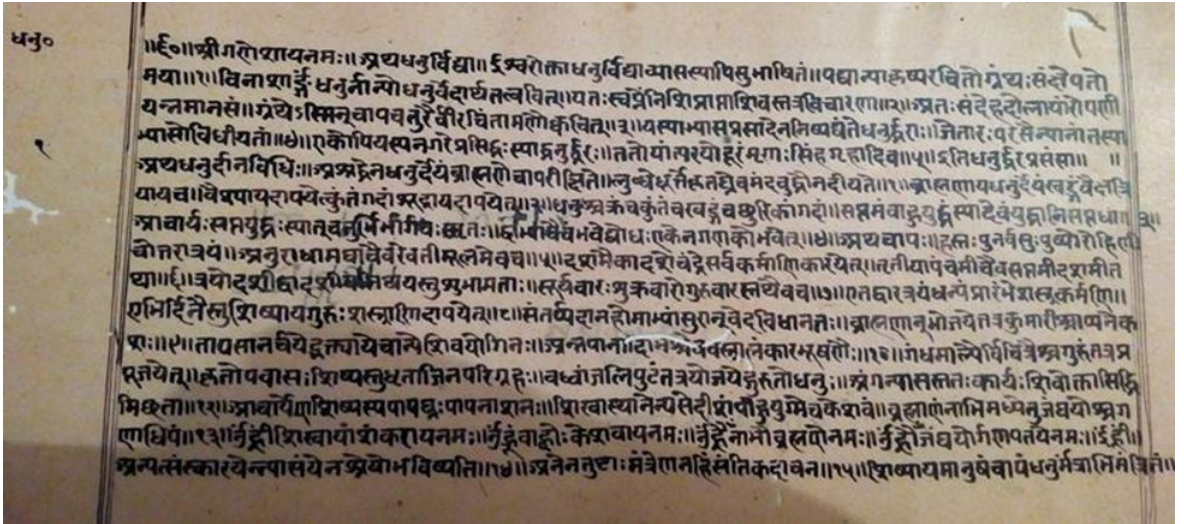 धनु०
१
॥६०॥श्रीगणेशायनमः॥अथधनुर्विद्या॥ईश्वरोक्ताधनुर्विद्याव्यासस्यापिसुभाषितं॥पद्यान्याहृष्यरचितोग्रंथःसंक्षेपतो
मया॥१॥विनाशार्ङ्गधनुर्नान्योधनुर्वेदार्थतत्ववित्॥यतःस्वप्नेनिशिप्राप्ताशिवस्तत्रविचारणा॥२॥अतःसंदेहदोलायांरोपणी
यन्नमानसं॥ग्रंथेऽस्मिन्चापचतुरैर्वीरचिंतामणौक्वचित्॥३॥यस्याभ्यासप्रसादेननिष्पद्यंतेधनुर्द्धराः॥जेतारःपरसैन्यानांतस्या
भ्यासोविधीयतां॥४॥एकोपियस्यनगरेप्रसिद्धःस्याद्धनुर्द्धरः॥ततोयांत्यरयोदूरंमृगाःसिंहगृहादिव॥५॥इतिधनुर्द्धरप्रसंसा॥ ॥
अथधनुर्दानविधिः॥ब्राह्मणायधनुर्देयंखड्गंवैक्षत्रि
यायच॥वैश्यायदापयेत्कुंतंगदांशूद्रायदापयेत्॥३॥धनुश्चक्रंचकुंतंचखड्गंचछुरिकांगदां॥सप्तमंबाहुयुद्धंस्यादेवंयुद्धानिसप्तधा॥३॥
आचार्यःसप्तयुद्धःस्यात्चतुर्भिर्भार्गवःस्मृतः॥द्वाभ्यांचैवभवेद्योधःएकेनगणकोभवेत्॥४॥अथचापः॥हस्तःपुनर्वसुःपुष्योरोहिणी
चोत्तरात्रयं॥अनुराधामघाचैवरेवतीमूलमेवच॥५॥दशमैकादशेचंद्रेसर्वकर्माणिकारयेत्॥तृतीयापंचमीचैवसप्तमीदशमीत
था॥६॥त्रयोदशीद्वादशीचतिथयस्तुशुभामताः॥सूर्यवारःशुक्रवारोगुरुवारस्तथैवच॥७॥एतद्वारत्रयंधन्यंप्रारंभेशस्त्रकर्मणि॥
एभिर्दिनैस्तुशिष्यायगुरुःशस्त्राणिदापयेत्॥८॥संतर्प्यदानहोमाभ्यांसुरान्वेदविधानतः॥ब्राह्मणान्भोजयेत्तत्रकुमारीश्चाप्यनेक
शः॥९॥तापसानर्चयेद्भक्त्यायेचान्येशिवयोगिनः॥अन्नपानादिभिश्चैववस्त्रालंकारभूषणैः॥१०॥गंधमाल्यैर्विचित्रैश्चगुरुंतत्रप्र
पूजयेत्॥कृतोपवासःशिष्यस्तुधृताजिनपरिग्रहः॥बध्वांजलिपुटंतत्रयोजयेद्गुरुतोधनुः॥अंगन्यासस्ततःकार्यःशिवोक्तःसिद्धि
मिछता॥१२॥आचार्येणशिष्यस्यपापघ्नःपापनाशनः॥शिखास्थानेन्यसेदीशंबाहुयुग्मेचकेशवं॥ब्रह्माणंनाभिमध्येतुजंघयोश्चग
णाधिपं॥१३॥शिखायांशंकरायनमः॥बाह्वोःकेशवायनमः॥नाभौब्रह्मणेनमः॥जंघयोर्गणपतयेनमः॥
अन्यत्संस्कारयेन्न्यासंयेनश्रेयोभविष्यति॥१४॥अनेनतुष्टाःमंत्रेणनहिंसंतिकदाचन॥१५॥शिष्यायमानुषंचापंधनुर्मंत्राभिमंत्रितं॥